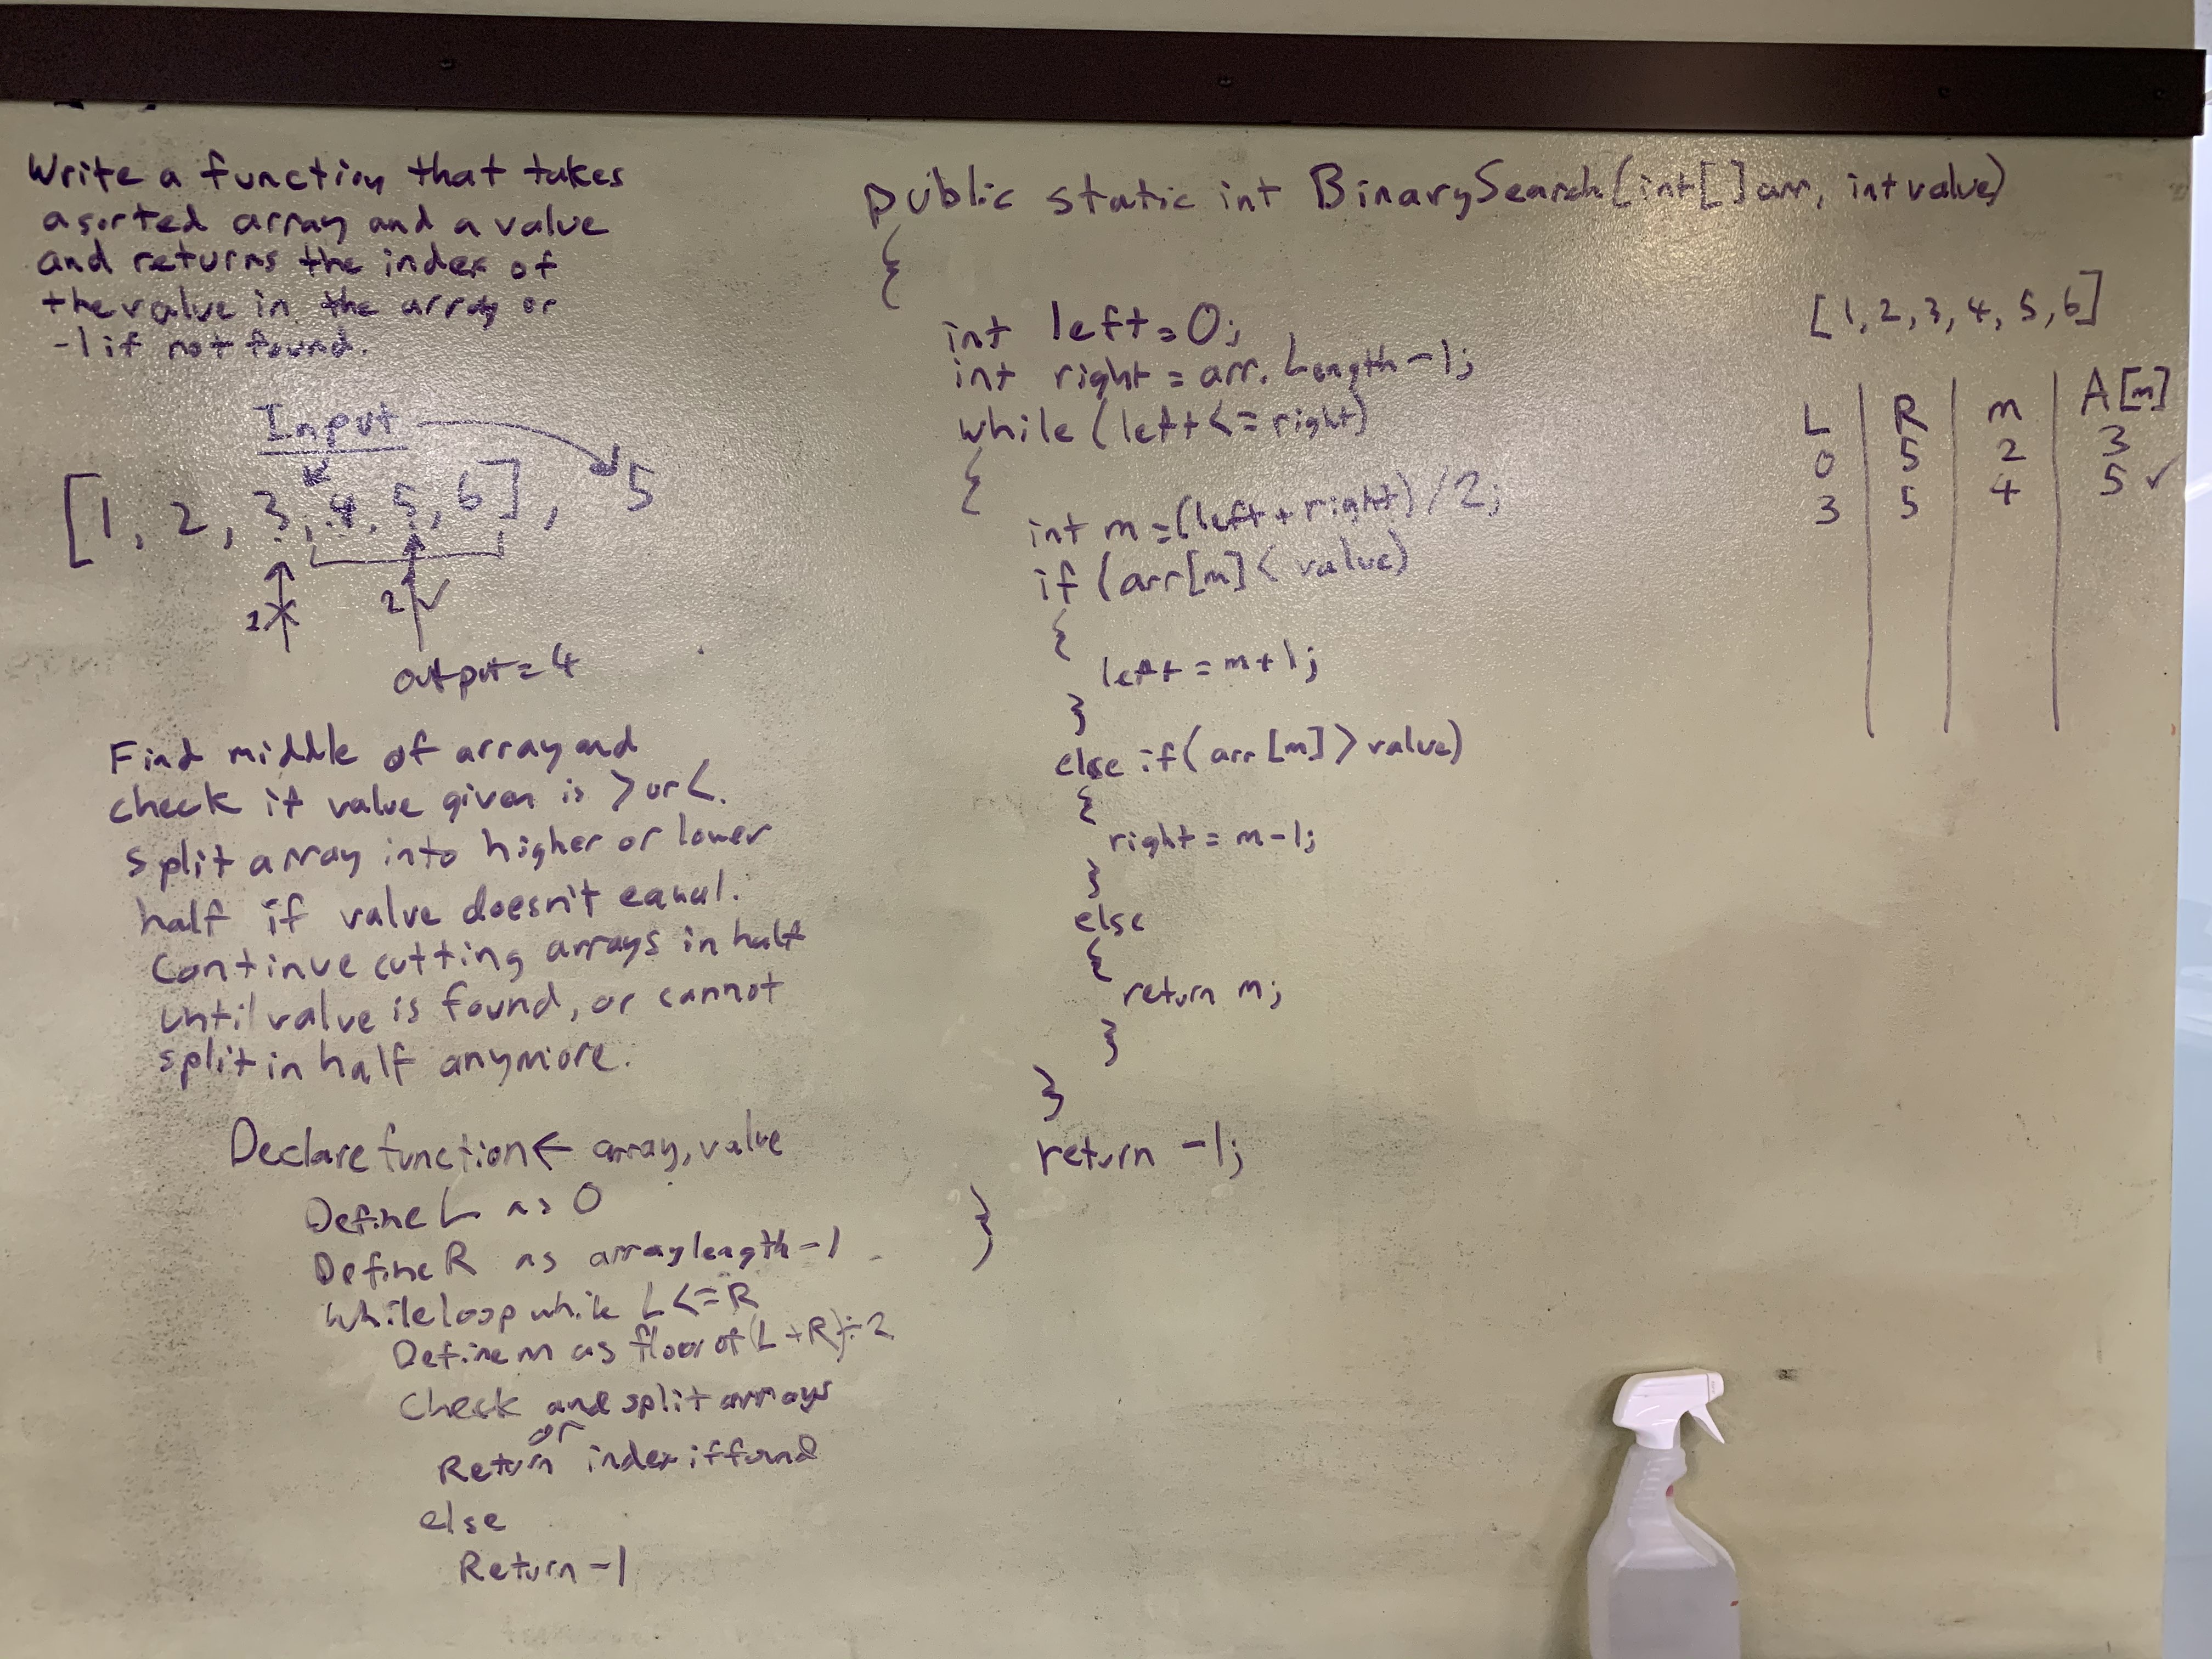 Write a function that takes
a sorted array and a value
and returns the index of
the value in the array or
-1 if not found.
Input
[1, 2, 3, 4, 5, 6], 5
1 2
output = 4
Find middle of array and
check if value given is > or <.
split array into higher or lower
half if value doesn't equal.
Continue cutting arrays in half
until value is found, or cannot
split in half anymore.
Declare function ← array, value
Define L as 0
Define R as array length -1
While loop while L <= R
Define m as floor of (L + R) ÷ 2
Check and split arrays
or
Return index if found
else
Return -1
public static int BinarySearch(int[] arr, int value)
{
int left = 0;
int right = arr.Length -1;
while (left <= right)
{
int m = (left + right) / 2;
if (arr[m] < value)
{
left = m + 1;
}
else if (arr[m] > value)
{
right = m - 1;
}
else
{
return m;
}
}
return -1;
}
[1, 2, 3, 4, 5, 6]
L | R | m | A[m]
0 5 2 3
3 5 4 5 ✓